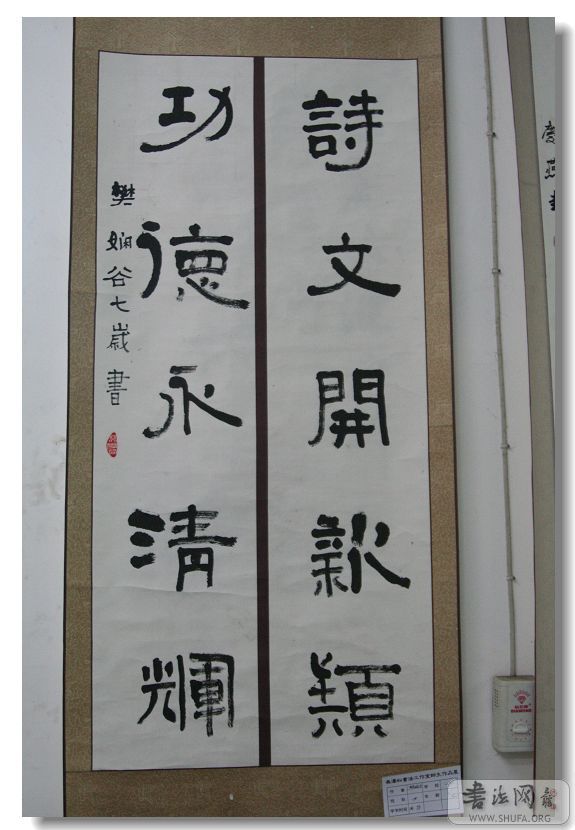 詩文開新穎
功德永清輝
樊娴谷七歲書
书法网
WWW.SHUFA.ORG